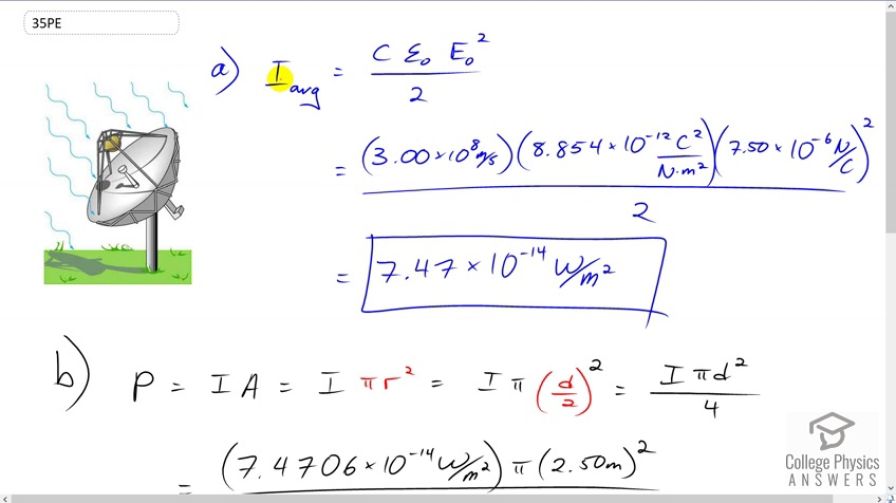 35PE
a) I avg = C ε₀ E₀² / 2
= (3.00 × 10⁸ m/s)(8.854 × 10⁻¹² C²/N·m²)(7.50 × 10⁻⁶ N/C)² / 2
= 7.47 × 10⁻¹⁴ W/m²
b) P = I A = I π r² = I π (d/2)² = I π d² / 4
= (7.4706 × 10⁻¹⁴ W/m²) π (2.50 m)²
College Physics
ANSWERS